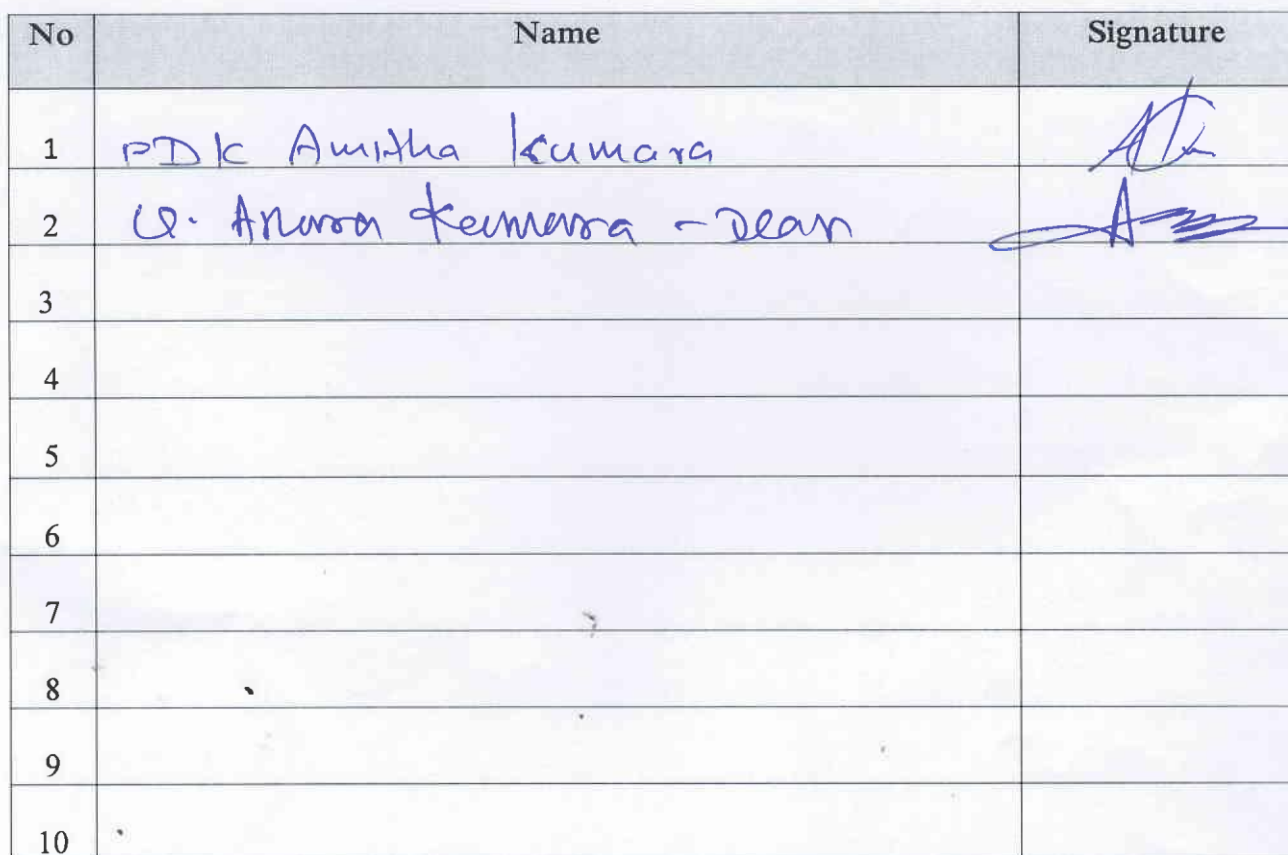 No Name Signature
1 PDK Amitha Kumara
2 U. Anura Kumara - Dean
3
4
5
6
7
8
9
10